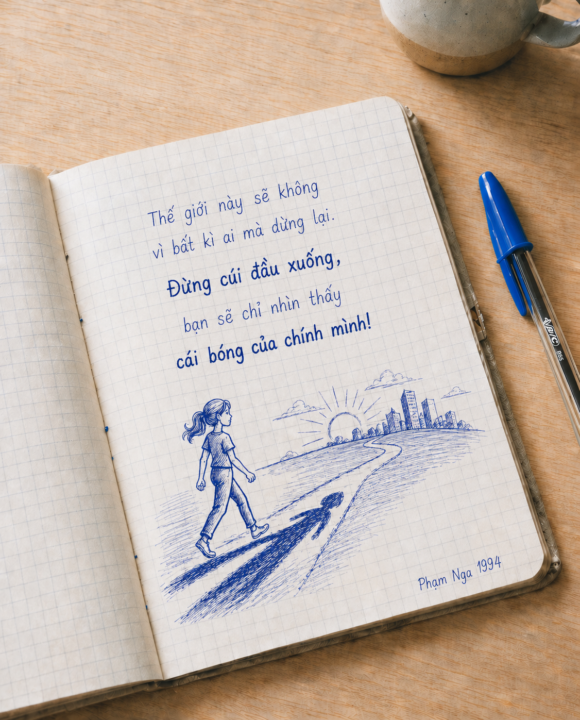 Thế giới này sẽ không
vì bất kì ai mà dừng lại.
Đừng cúi đầu xuống,
bạn sẽ chỉ nhìn thấy
cái bóng của chính mình!
Phạm Nga 1994